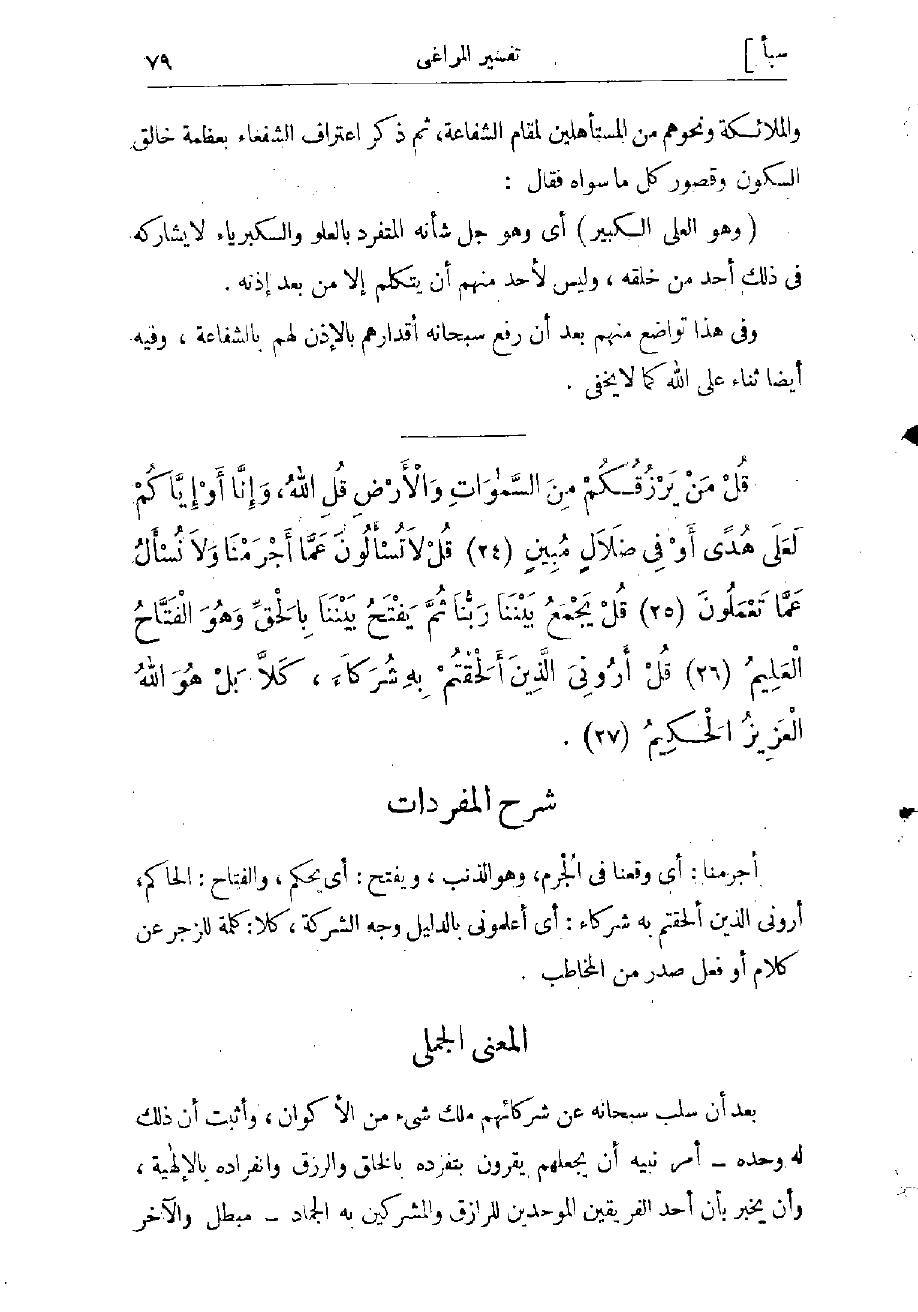 سبأ ]
تفسير المراغى
٧٩
والملائكة ونحوهم من المستأهلين لمقام الشفاعة، ثم ذكر اعتراف الشفعاء بعظمة خالق
الكون وقصور كل ما سواه فقال :
( وهو العلى الكبير ) أى وهو جل شأنه المتفرد بالعلو والكبرياء لا يشاركه
فى ذلك أحد من خلقه ، وليس لأحد منهم أن يتكلم إلا من بعد إذنه .
وفى هذا تواضع منهم بعد أن رفع سبحانه أقدارهم بالإذن لهم بالشفاعة ، وفيه
أيضا ثناء على الله كما لا يخفى .
قُلْ مَنْ يَرْزُقُكُمْ مِنَ السَّمٰوَاتِ وَالْأَرْضِ قُلِ اللهُ، وَإِنَّا أَوْ إِيَّاكُمْ
لَعَلَى هُدًى أَوْ فِى ضَلَالٍ مُبِينٍ (٢٤) قُلْ لاَ تُسْأَلُونَ عَمَّا أَجْرَمْنَا وَلاَ نُسْأَلُ
عَمَّا تَعْمَلُونَ (٢٥) قُلْ يَجْمَعُ بَيْنَنَا رَبُّنَا ثُمَّ يَفْتَحُ بَيْنَنَا بِالْحَقِّ وَهُوَ الْفَتَّاحُ
الْعَلِيمُ (٢٦) قُلْ أَرُونِىَ الَّذِينَ أَلْحَقْتُمْ بِهِ شُرَكَاءَ ، كَلاَّ بَلْ هُوَ اللهُ
الْعَزِيزُ الْحَكِيمُ (٢٧) .
شرح المفردات
أجرمنا : أى وقعنا فى الجُرم، وهو الذنب ، ويفتح : أى يحكم ، والفتاح : الحاكم،
أرونى الذين ألحقتم به شركاء : أى أعلمونى بالدليل وجه الشركة ، كلا: كلمة للزجر عن
كلام أو فعل صدر من المخاطب .
المعنى الجملى
بعد أن سلب سبحانه عن شركائهم ملك شىء من الأكوان ، وأثبت أن ذلك
له وحده – أمر نبيه أن يجعلهم يقرون بتفرده بالخلق والرزق وانفراده بالإلهية ،
وأن يخبر بأن أحد الفريقين الموحدين للرازق والمشركين به الجماد – مبطل والآخر